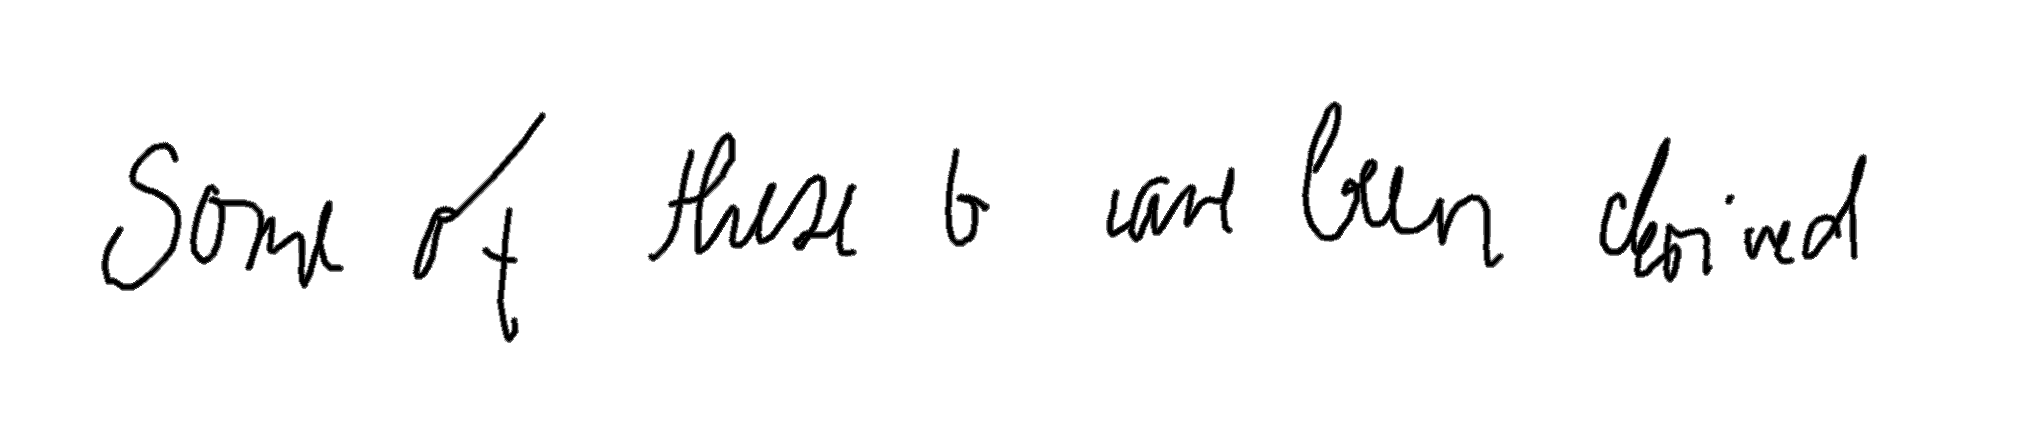 Some of these been derived